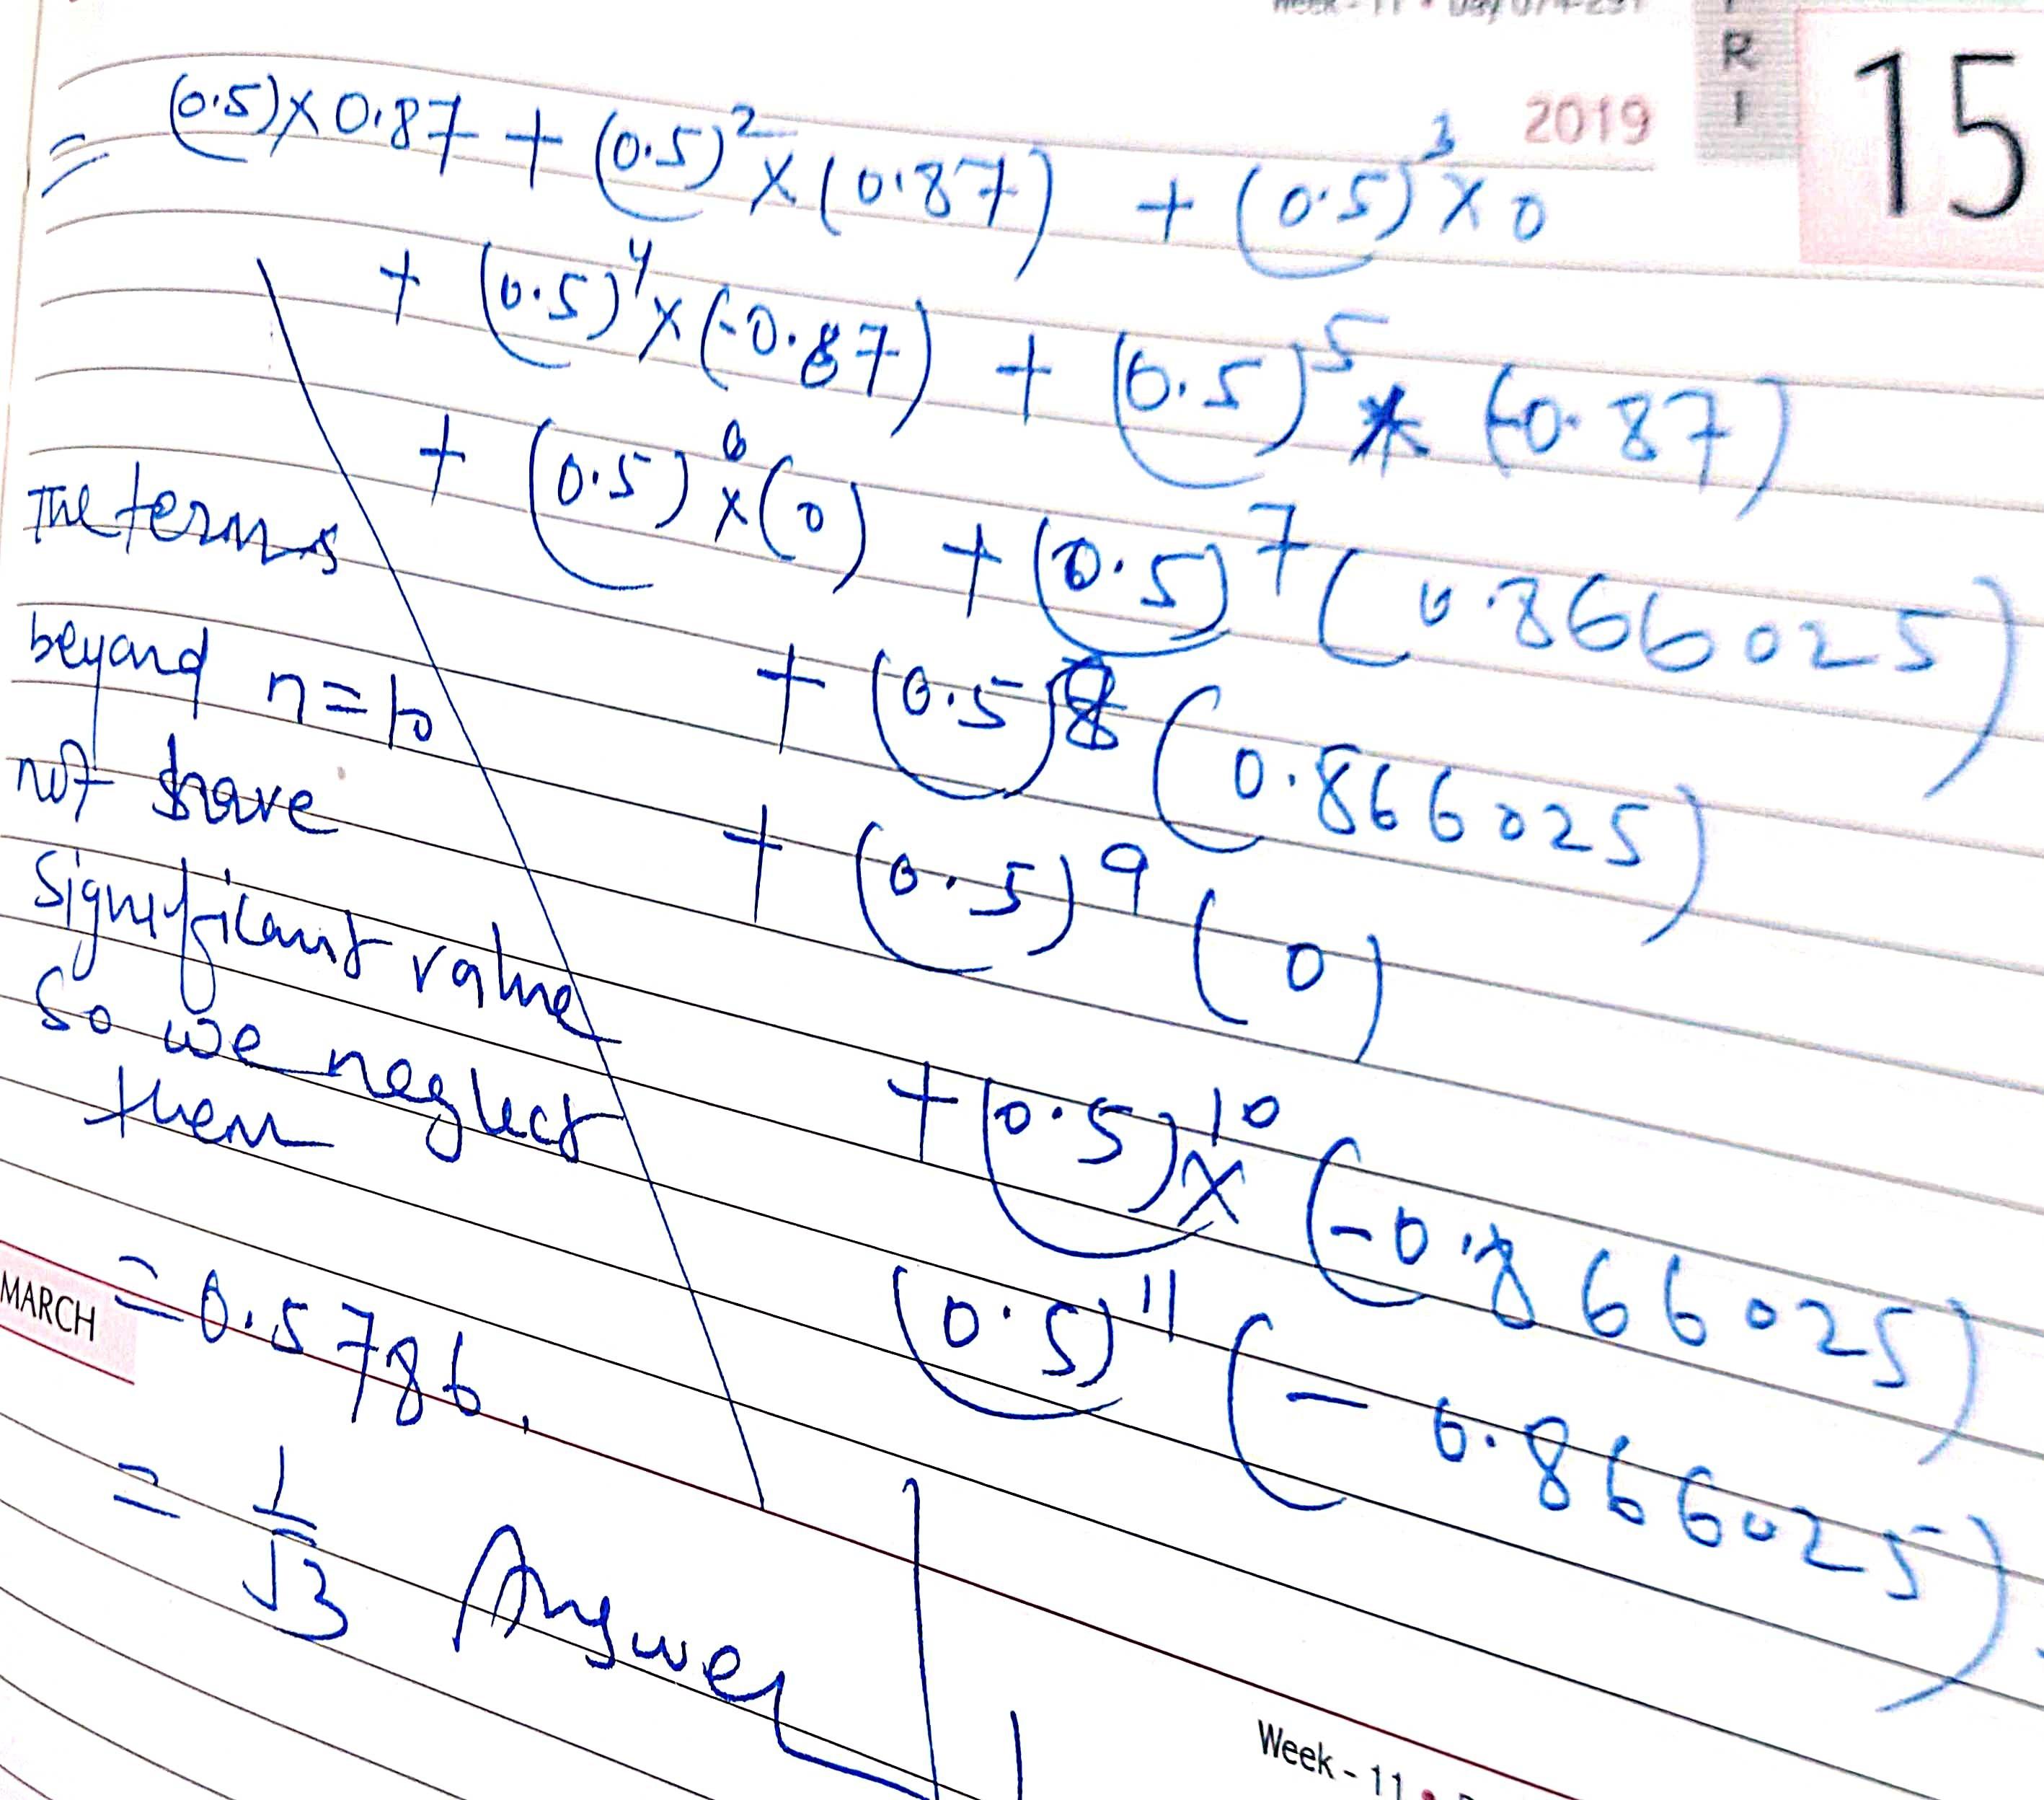 2019
FRI
15
= (0.5)×0.87 + (0.5)²×(0.87) + (0.5)³×0
+ (0.5)⁴×(-0.87) + (0.5)⁵*(-0.87)
+ (0.5)⁶×(0) + (0.5)⁷(0.866025)
+ (0.5)⁸(0.866025)
+ (0.5)⁹(0)
+(0.5)¹⁰×(-0.866025)
(0.5)¹¹(-0.866025)
The terms
beyond n=10
not have
significant value
So we neglect
them
MARCH
= 0.5786.
= 1/√3 Answer
Week - 11 •